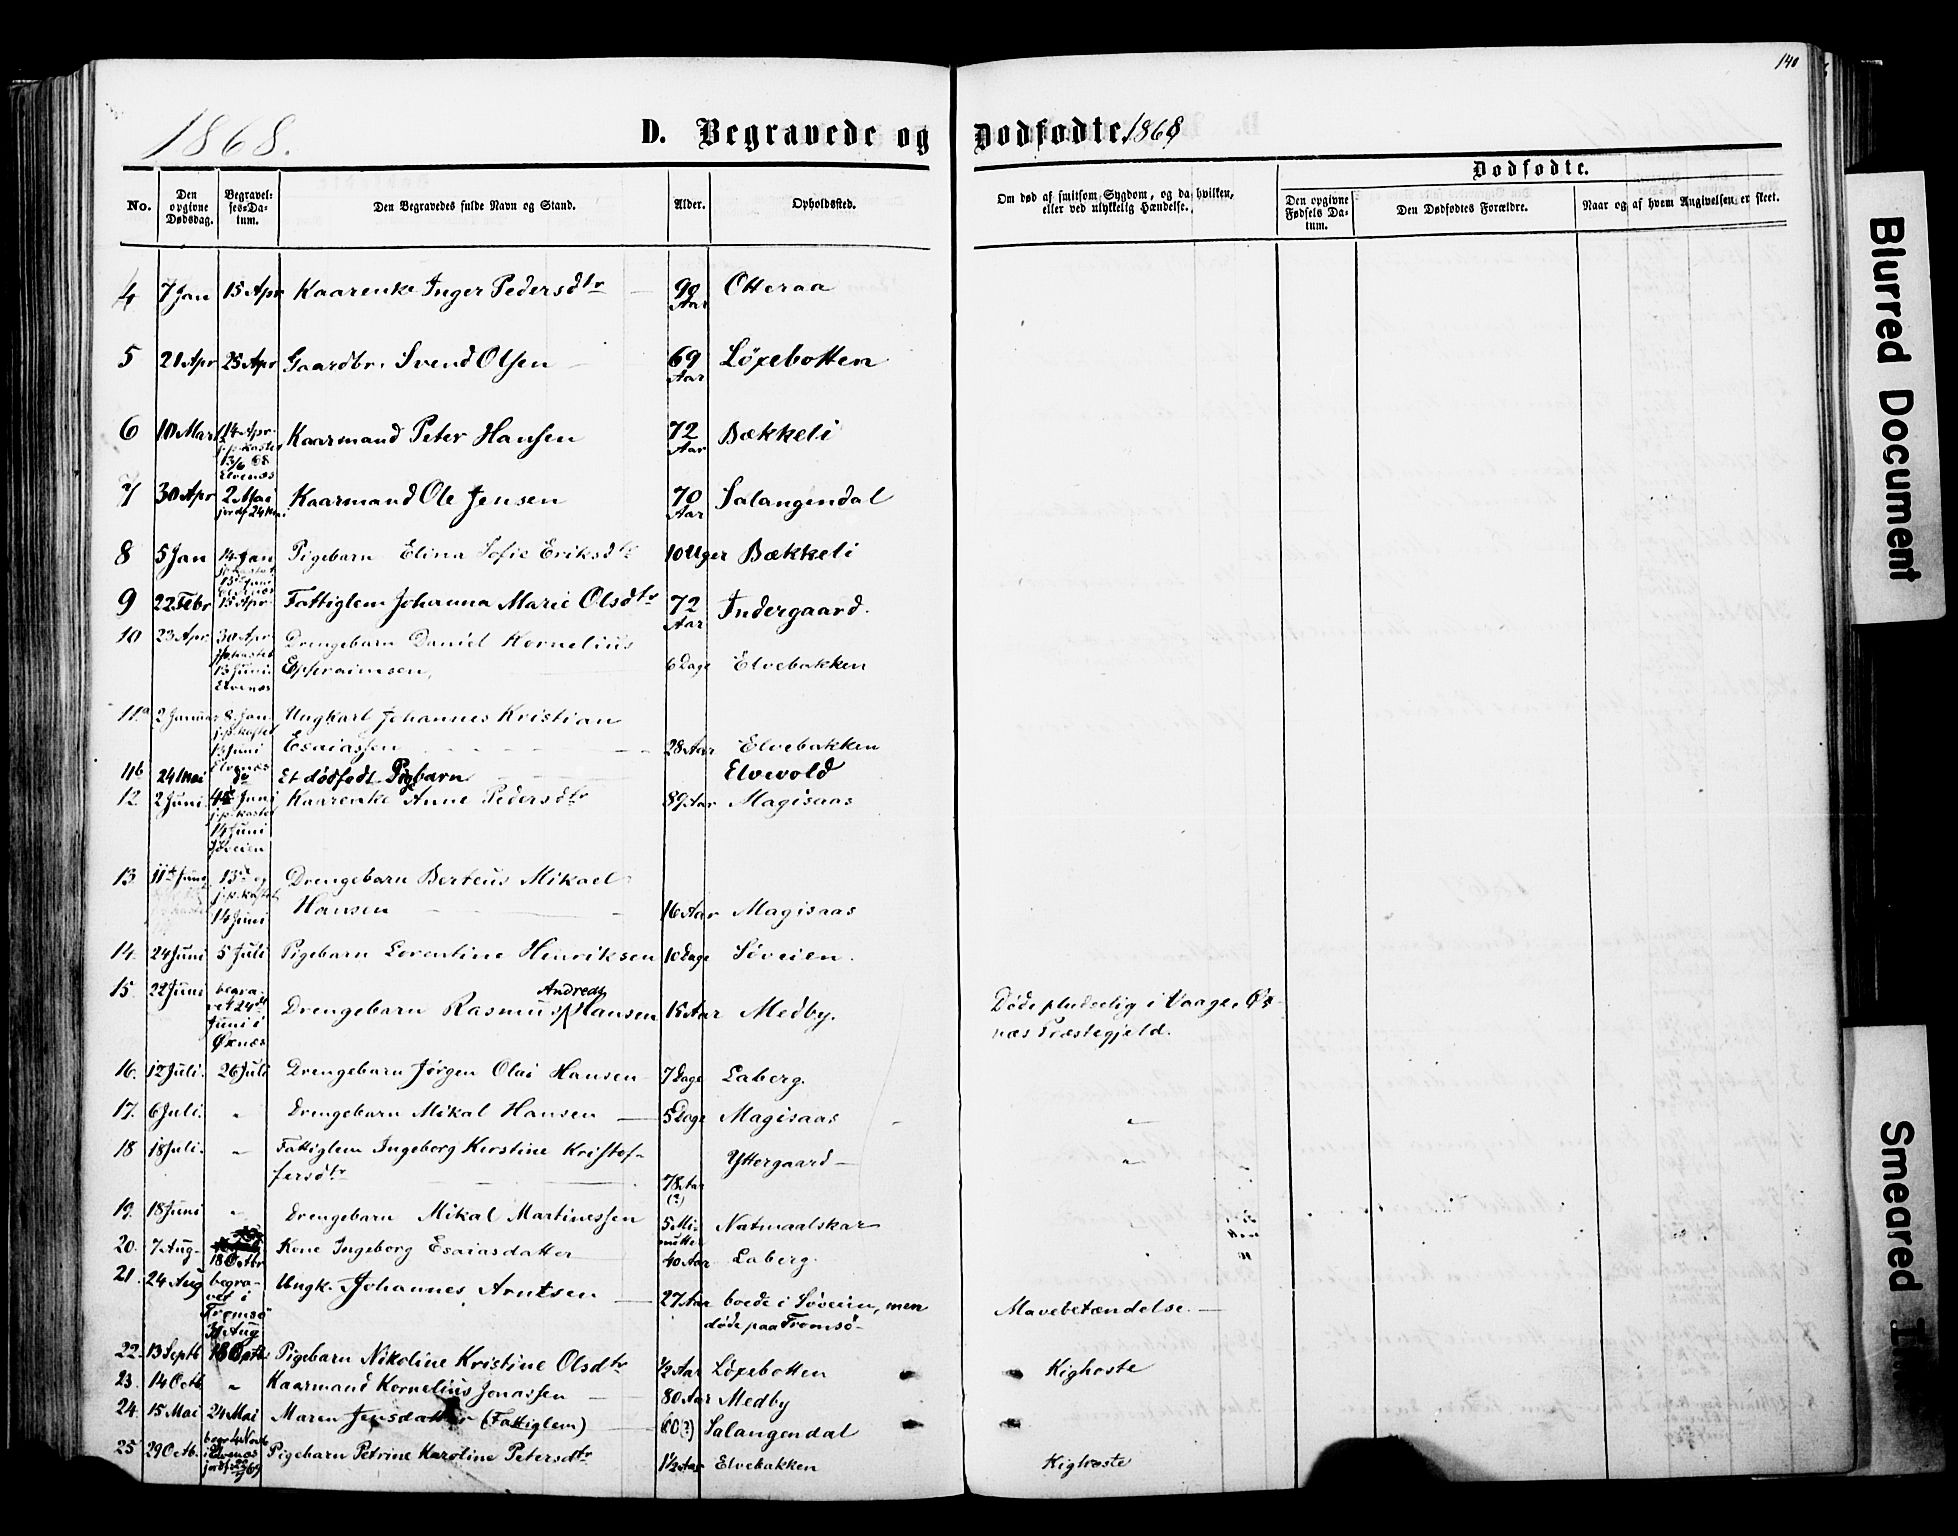 140
1868.
D. Begravede og Dødfødte 1868
Dødfødte.
No.
Den opgivne Dødsdag.
Begravelses-Datum.
Den Begravedes fulde Navn og Stand.
Alder.
Opholdssted.
Om død af smitsom Sygdom, og da hvilken, eller ved ulykkelig Hændelse.
Den opgivne Fødsels Datum.
Den Dødfødtes Forældre.
Naar og af hvem Angivelsen er skeet.
4 7 Jan 15 Apr Kaarenke Inger Pedersdtr 90 Aar Otteraa
5 21 Apr 25 Apr Gaardbr. Svend Olsen 69 Aar Löxebotten
6 10 Mart 14 Apr. j.p.kastet 13/6 68 Elvenæs Kaarmand Peter Hansen 72 Aar Bækkeli
7 30 Apr 2 Mai jordf 24 Mai Kaarmand Ole Jensen 70 Aar Salangendal
8 5 Jan 14 Jan j.p.kastet 13de Juni Elvenæs Pigebarn Elina Sofie Eriksdtr 10 Uger Bækkeli
9 22 Febr 15 Apr. Fattiglem Johanna Marie Olsdtr 72 Aar Indergaard.
10 23 Apr. 30 Apr. j.p.kastet 13 Juni. Elvenæs Drengebarn Daniel Kornelius
Epfraimsen, 6 Dage Elvebakken
11a 2 Januar 8. Jan. j.p.kastet 13 Juni Elvenæs Ungkarl Johannes Kristian
Esaiassen 28 Aar Elvebakken
11b 24 Mai do Et dødfødt Pigebarn Elvevold
12. 2 Juni. 4de Juni j.p.kastet 14 Juni Søveien Kaarenke Anne Pedersdtr 89 Aar Magisaas
13 11te Juni 13de og j.p.kastet 14 Juni Drengebarn Berteus Mikael
Hansen 16 Aar Magisaas
14. 24 Juni 5 Juli Pigebarn Lorentine Henriksen 10 Dage Søveien.
15. 22 Juni begravet 24de Juni i Øxnæs Drengebarn Rasmus Andreas Hansen 15 Aar Medby. Døde pludselig i Vaage, Øx-
næs Præstegjeld.
16. 12 Juli. 26 Juli Drengebarn Jørgen Olai Hansen 7 Dage Laberg.
17. 6 Juli. " Drengebarn Mikal Hansen 5 Dage Magisaas "
18 18 Juli. " Fattiglem Ingeborg Kirstine Kristof-
fersdtr 78 Aar (?) Yttergaard "
19. 18 Juni " Drengebarn Mikal Martinessen 5 Minutter Natmaalskar
20. 7 Aug. 18 Octbr Kone Ingeborg Esaiasdatter 40 Aar Laberg.
21. 24 Aug begravet i Tromsø 31 Aug Ungk. Johannes Arntsen 27 Aar boede i Søveien, men
døde paa Tromsø Mavebetændelse.
22. 13 Septb 18 Octb Pigebarn Nikoline Kristine Olsdtr ½ Aar Löxebotten Kighoste
23. 14 Octb " Kaarmand Kornelius Jonassen 80 Aar Medby
24. 15 Mai 24 Mai Maren Jensdatter (Fattiglem) 60 (?) Salangendal
25 29 Octb. Pigebarn Petrine Karoline Petersdtr 1½ Aar Elvebakken Kighoste
Blurred Document
Smeared